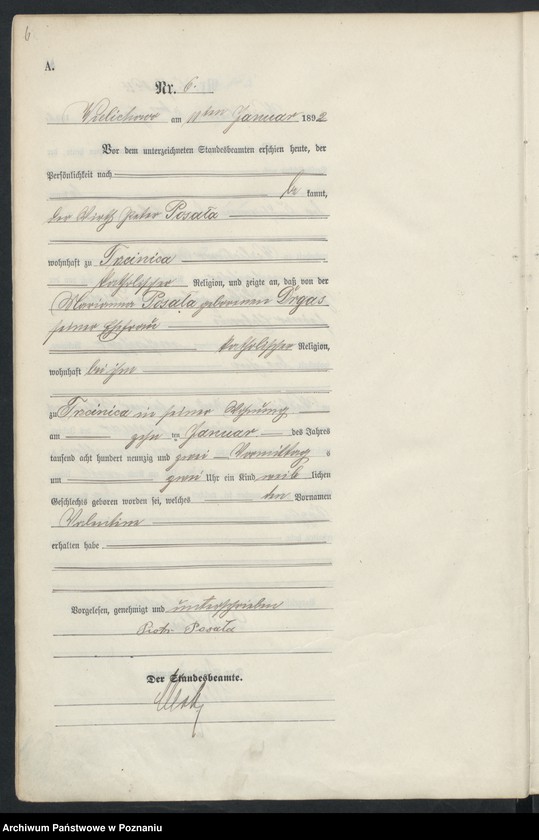 6
A.
Nr. 6.
Wielichowo am 11ten Januar 1892
Vor dem unterzeichneten Standesbeamten erschien heute, der
Persönlichkeit nach
be kannt,
der Wirth Peter Posała
wohnhaft zu Trzinica
katholischer Religion, und zeigte an, daß von der
Marianna Posała geborenen Drgas
seiner Ehefrau
katholischer Religion,
wohnhaft bei ihm
zu Trzinica in seiner Wohnung
am zehn ten Januar des Jahres
tausend acht hundert neunzig und zwei Vormittag s
um zwei Uhr ein Kind weib lichen
Geschlechts geboren worden sei, welches den Vornamen
Valentine
erhalten habe
Vorgelesen, genehmigt und unterschrieben
Piotr Posała
Der Standesbeamte.
Archiwum Państwowe w Poznaniu